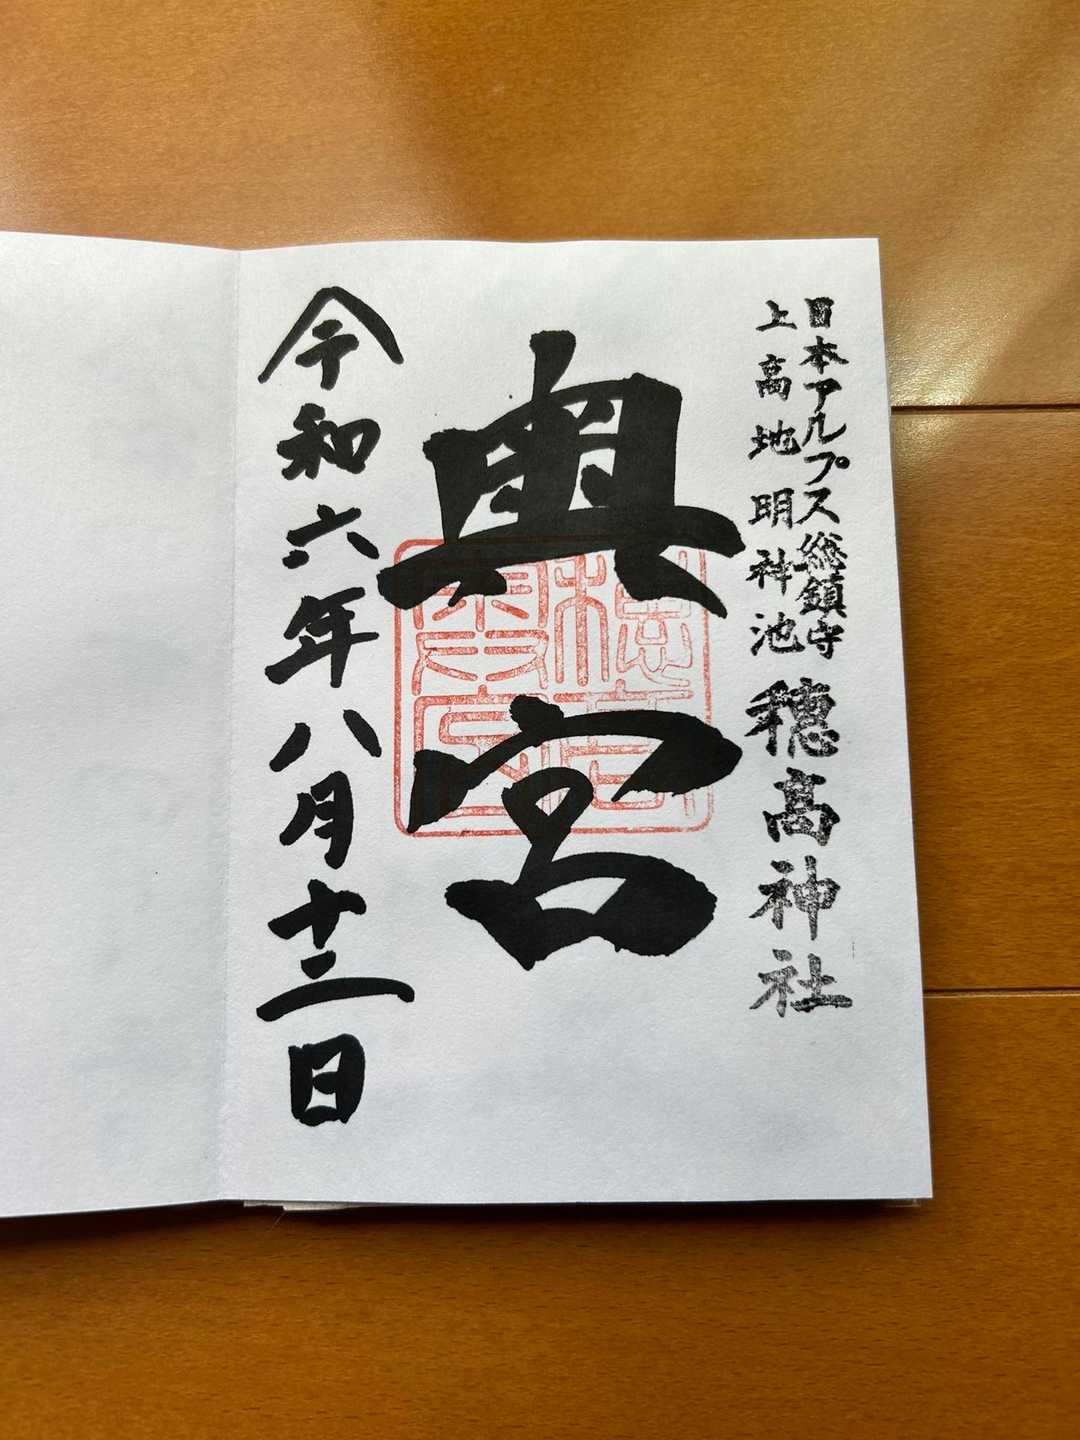 日本アルプス総鎮守
上高地明神池
穂高神社
奥宮
穂高
奥宮
令和六年八月十二日